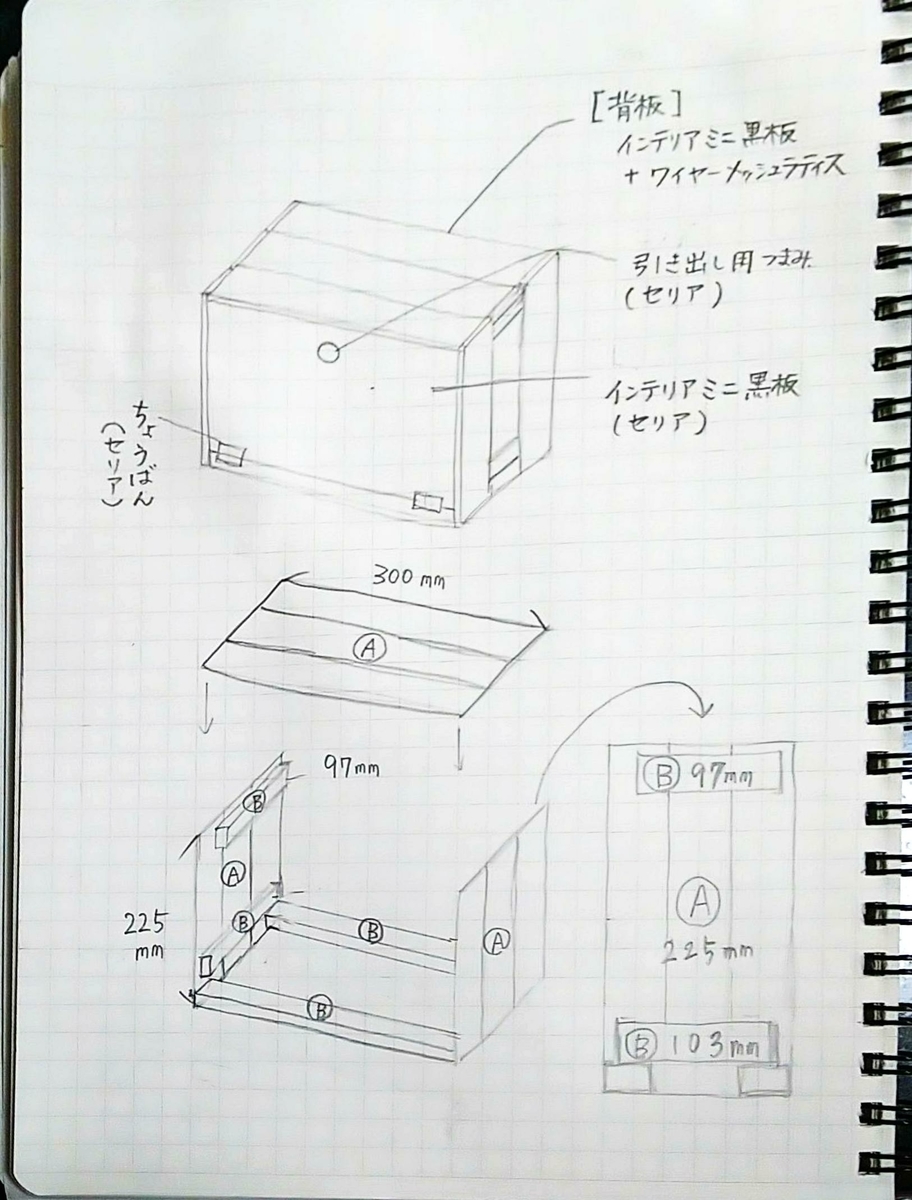 [背板]
インテリアミニ黒板
+ ワイヤーメッシュラティス
引き出し用つまみ
(セリア)
インテリアミニ黒板
(セリア)
ちょうばん
(セリア)
300mm
A
97mm
B
A
B
225
mm
B
B
A
B 97mm
A
225mm
B 103mm